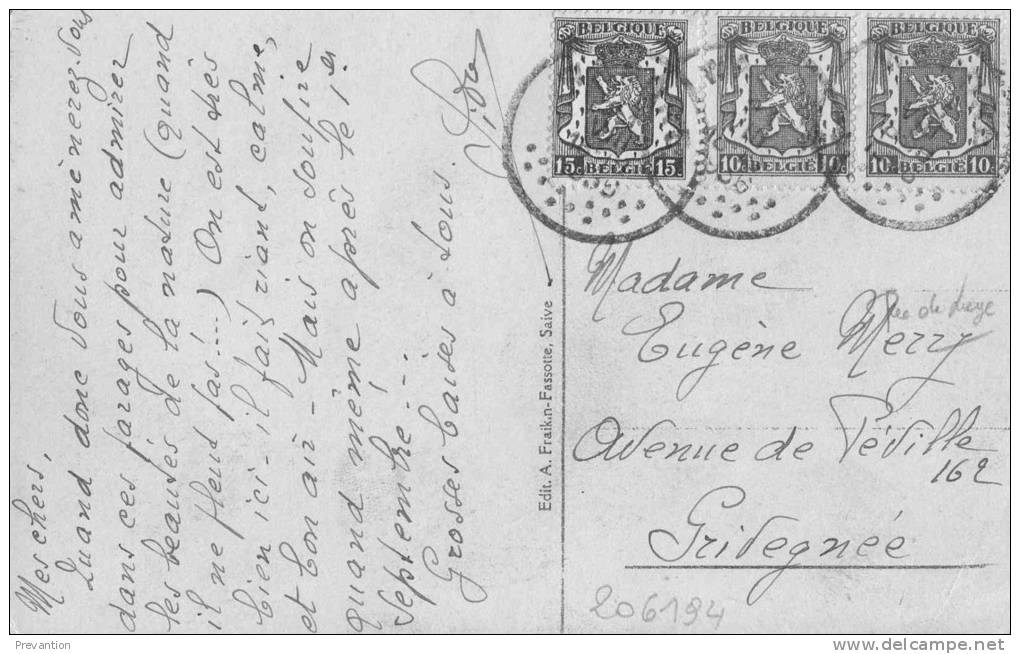 Mes chers,
Quand donc vous amènerez-vous
dans ces parages pour admirer
les beautés de la nature (quand
il ne pleut pas!...) On est très
bien ici - il fait riant, calme,
et bon air - Mais on soupire
quand même après le 1er
septembre...
Grosses baises à tous
BELGIQUE
15c 15c
BELGIË
BELGIQUE
10c 10c
BELGIË
BELGIQUE
10c 10c
BELGIË
Edit. A. Fraikin-Fassotte, Saive
Madame
Eugène Merry
Avenue de Péville
162
Grivegnée
206194
Prevantion
www.delcampe.net